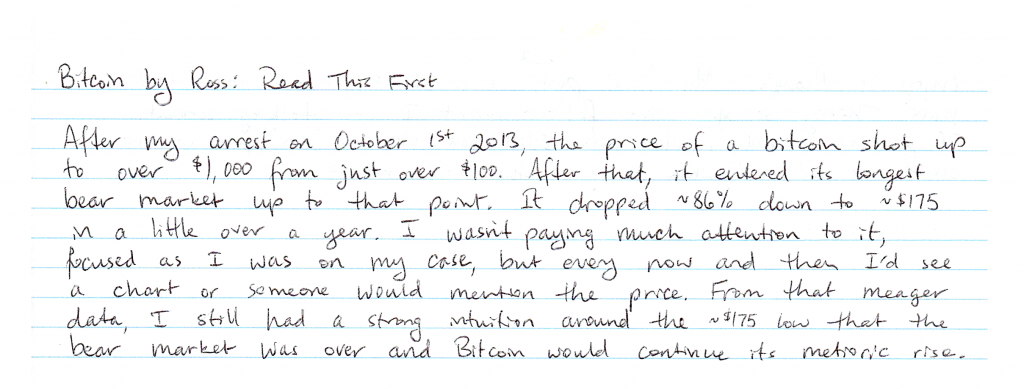 Bitcoin by Ross: Read This First
After my arrest on October 1st 2013, the price of a bitcoin shot up
to over $1,000 from just over $100. After that, it entered its longest
bear market up to that point. It dropped ~86% down to ~$175
in a little over a year. I wasn't paying much attention to it,
focused as I was on my case, but every now and then I'd see
a chart or someone would mention the price. From that meager
data, I still had a strong intuition around the ~$175 low that the
bear market was over and Bitcoin would continue its metioric rise.